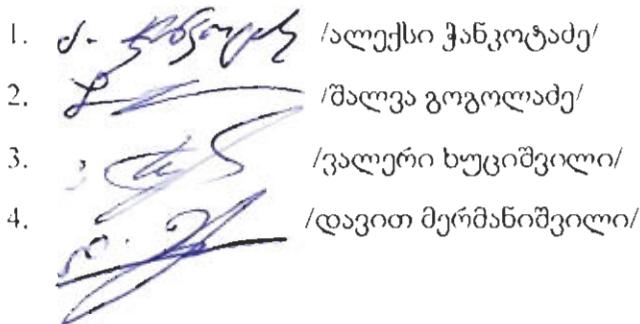 1. /ალექსი ჭანკოტაძე/
2. /შალვა გოგოლაძე/
3. /ვალერი ხუციშვილი/
4. /დავით მერმანიშვილი/